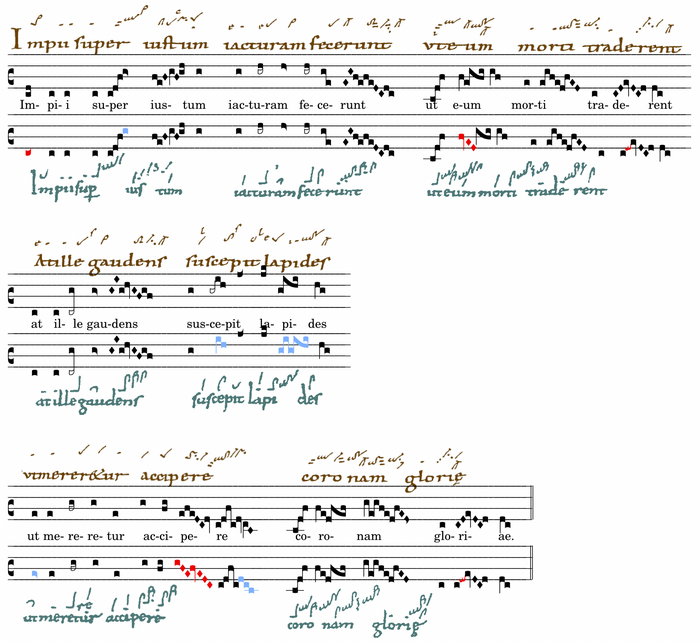 Impii super iustum iacturam fecerunt ute um morti traderent
Im- pi- i su-per ius- tum iac-tu-ram fe-ce- runt ut e-um mor-ti tra- de- rent
Impii sup ius tum iacturam fecerunt ut eum morti trade rent
At ille gaudens suscepit lapides
at il- le gau-dens sus-ce-pit la- pi- des
at ille gaudens suscepit lapi des
ut mereretur accipere coronam glorię
ut me- re- re- tur ac-ci- pe- re co- ro- nam glo- ri- ae.
ut meretur accipere coro nam glorię